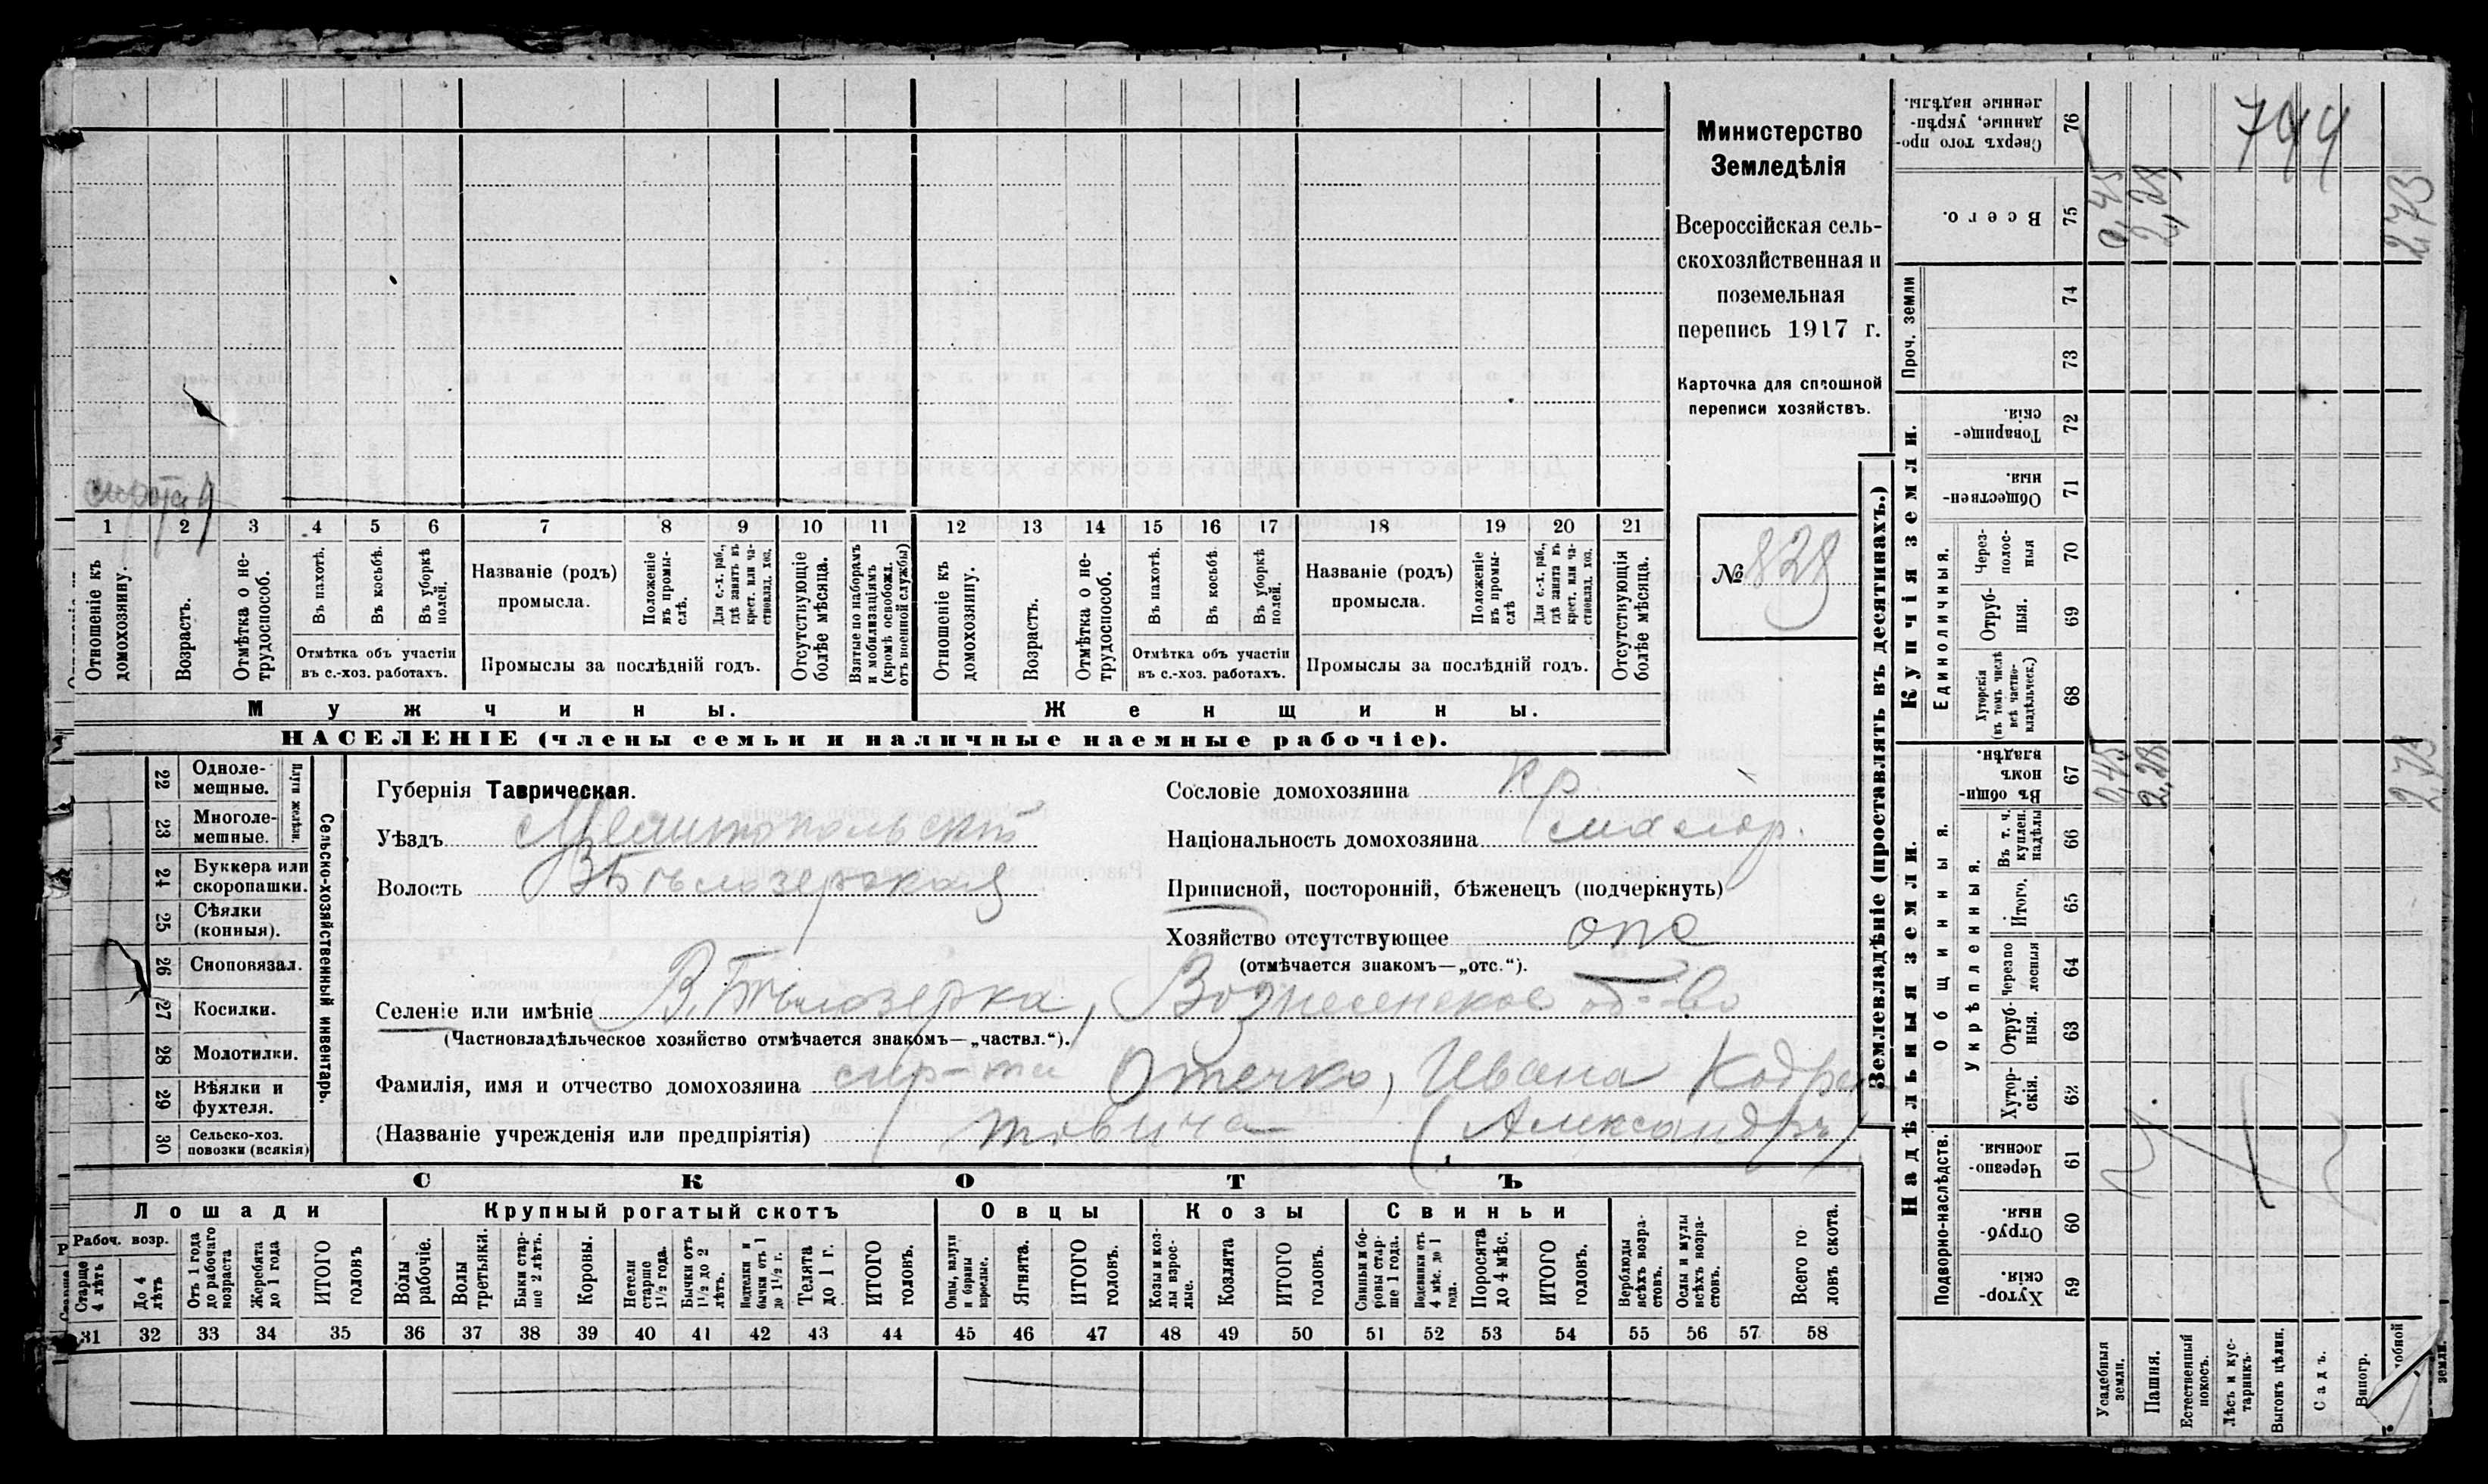 Министерство
Земледѣлія
Всероссійская сель-
скохозяйственная и
поземельная
перепись 1917 г.
Карточка для сплошной
переписи хозяйствъ.
№ 828
сирота 9
1 2 3 4 5 6 7 8 9 10 11 12 13 14 15 16 17 18 19 20 21
Отношеніе къ домохозяину.
Возрастъ.
Отмѣтка о не-трудоспособ.
Въ пахотѣ.
Въ косьбѣ.
Въ уборкѣ полей.
Отмѣтка объ участіи
въ с.-хоз. работахъ.
Названіе (родъ)
промысла.
Положеніе въ промы-слѣ.
Для с.-х. раб., гдѣ занятъ въ крест. или ча-стновлад. хоз.
Промыслы за послѣдній годъ.
Отсутствующіе болѣе мѣсяца.
Взятые по наборамъ и мобилизаціямъ (кромѣ освобожд. отъ военной службы)
Отношеніе къ домохозяину.
Возрастъ.
Отмѣтка о не-трудоспособ.
Въ пахотѣ.
Въ косьбѣ.
Въ уборкѣ полей.
Отмѣтка объ участіи
въ с.-хоз. работахъ.
Названіе (родъ)
промысла.
Положеніе въ промы-слѣ
Для с.-х. раб., гдѣ занята въ крест. или ча-стновлад. хоз.
Промыслы за послѣдній годъ.
Отсутствующія болѣе мѣсяца.
Мужчины.
Женщины.
НАСЕЛЕНІЕ (члены семьи и наличные наемные рабочіе).
Сельско-хозяйственный инвентарь.
Плуги желѣзн.
22 Одноле-мешные.
23 Многоле-мешные.
24 Буккера или скоропашки.
25 Сѣялки (конныя).
26 Сноповязал.
27 Косилки.
28 Молотилки.
29 Вѣялки и фухтеля.
30 Сельско-хоз. повозки (всякія)
Губернія Таврическая.
Уѣздъ Мелитопольскій
Волость В Бѣлозерская
Сословіе домохозяина кр.
Національность домохозяина малор.
Приписной, посторонній, бѣженецъ (подчеркнуть)
Хозяйство отсутствующее опс
(отмѣчается знакомъ—„отс.“).
Селеніе или имѣніе В. Бѣлозерка, Вознесенское об-во
(Частновладѣльческое хозяйство отмѣчается знакомъ—„частвл.“).
Фамилія, имя и отчество домохозяина сир-та Отечко, Ивана Кодра
(Названіе учрежденія или предпріятія) товича (Александръ)
СКОТЪ
Лошади
Крупный рогатый скотъ
Овцы
Козы
Свиньи
Рабоч. возр.
Старше 4 лѣтъ
До 4 лѣтъ
Отъ 1 года до рабочаго возраста
Жеребята до 1 года
ИТОГО головъ
Волы рабочіе.
Волы третьяки.
Быки стар-ше 2 лѣтъ.
Коровы.
Нетели старше 1½ года.
Бычки отъ 1½ до 2 лѣтъ.
Подтелки и бычки отъ 1 до 1½ г.
Телята до 1 г.
ИТОГО головъ.
Овцы, валухи и бараны взрослые.
Ягнята.
ИТОГО головъ.
Козы и коз-лы взрос-лые.
Козлята
ИТОГО головъ.
Свиньи и бо-ровы стар-ше 1 года.
Подсвинки отъ 4 мѣс. до 1 года.
Поросята до 4 мѣс.
ИТОГО головъ.
Верблюды всѣхъ возра-стовъ.
Ослы и мулы всѣхъ возра-стовъ.
Всего го ловъ скота.
31 32 33 34 35 36 37 38 39 40 41 42 43 44 45 46 47 48 49 50 51 52 53 54 55 56 57 58
Землевладѣніе (проставлять въ десятинахъ.)
Надѣльныя земли.
Купчія земли.
Проч. земли
Подворно-наслѣдств.
Общинныя.
Укрѣпленныя.
Единоличныя.
76 Сверхъ того про-данные, укрѣп-ленные надѣлы.
75 Всего. 0,45 2,28 2,73
74
73
72 Товарище-скія.
71 Обществен-ныя.
70 Через-полос-ныя
69 Отруб-ныя.
68 Хуторскія (въ томъ числѣ всѣ частно-владѣльческ.)
67 Въ общи-номъ владѣн. 0,45 2,28 2,73
66 Въ т. ч. куплен. надѣлы
65 Итого.
64 Черезпо лосныя
63 Отруб-ныя.
62 Хутор-скія.
61 Черезпо-лосныя.
60 Отруб-ныя.
59 Хутор-скія.
Усадебныя земли.
Пашня.
Естественный покосъ.
Лѣсъ и кус-тарникъ.
Выгонъ цѣлин.
Садъ.
Виногр.
земли.
744